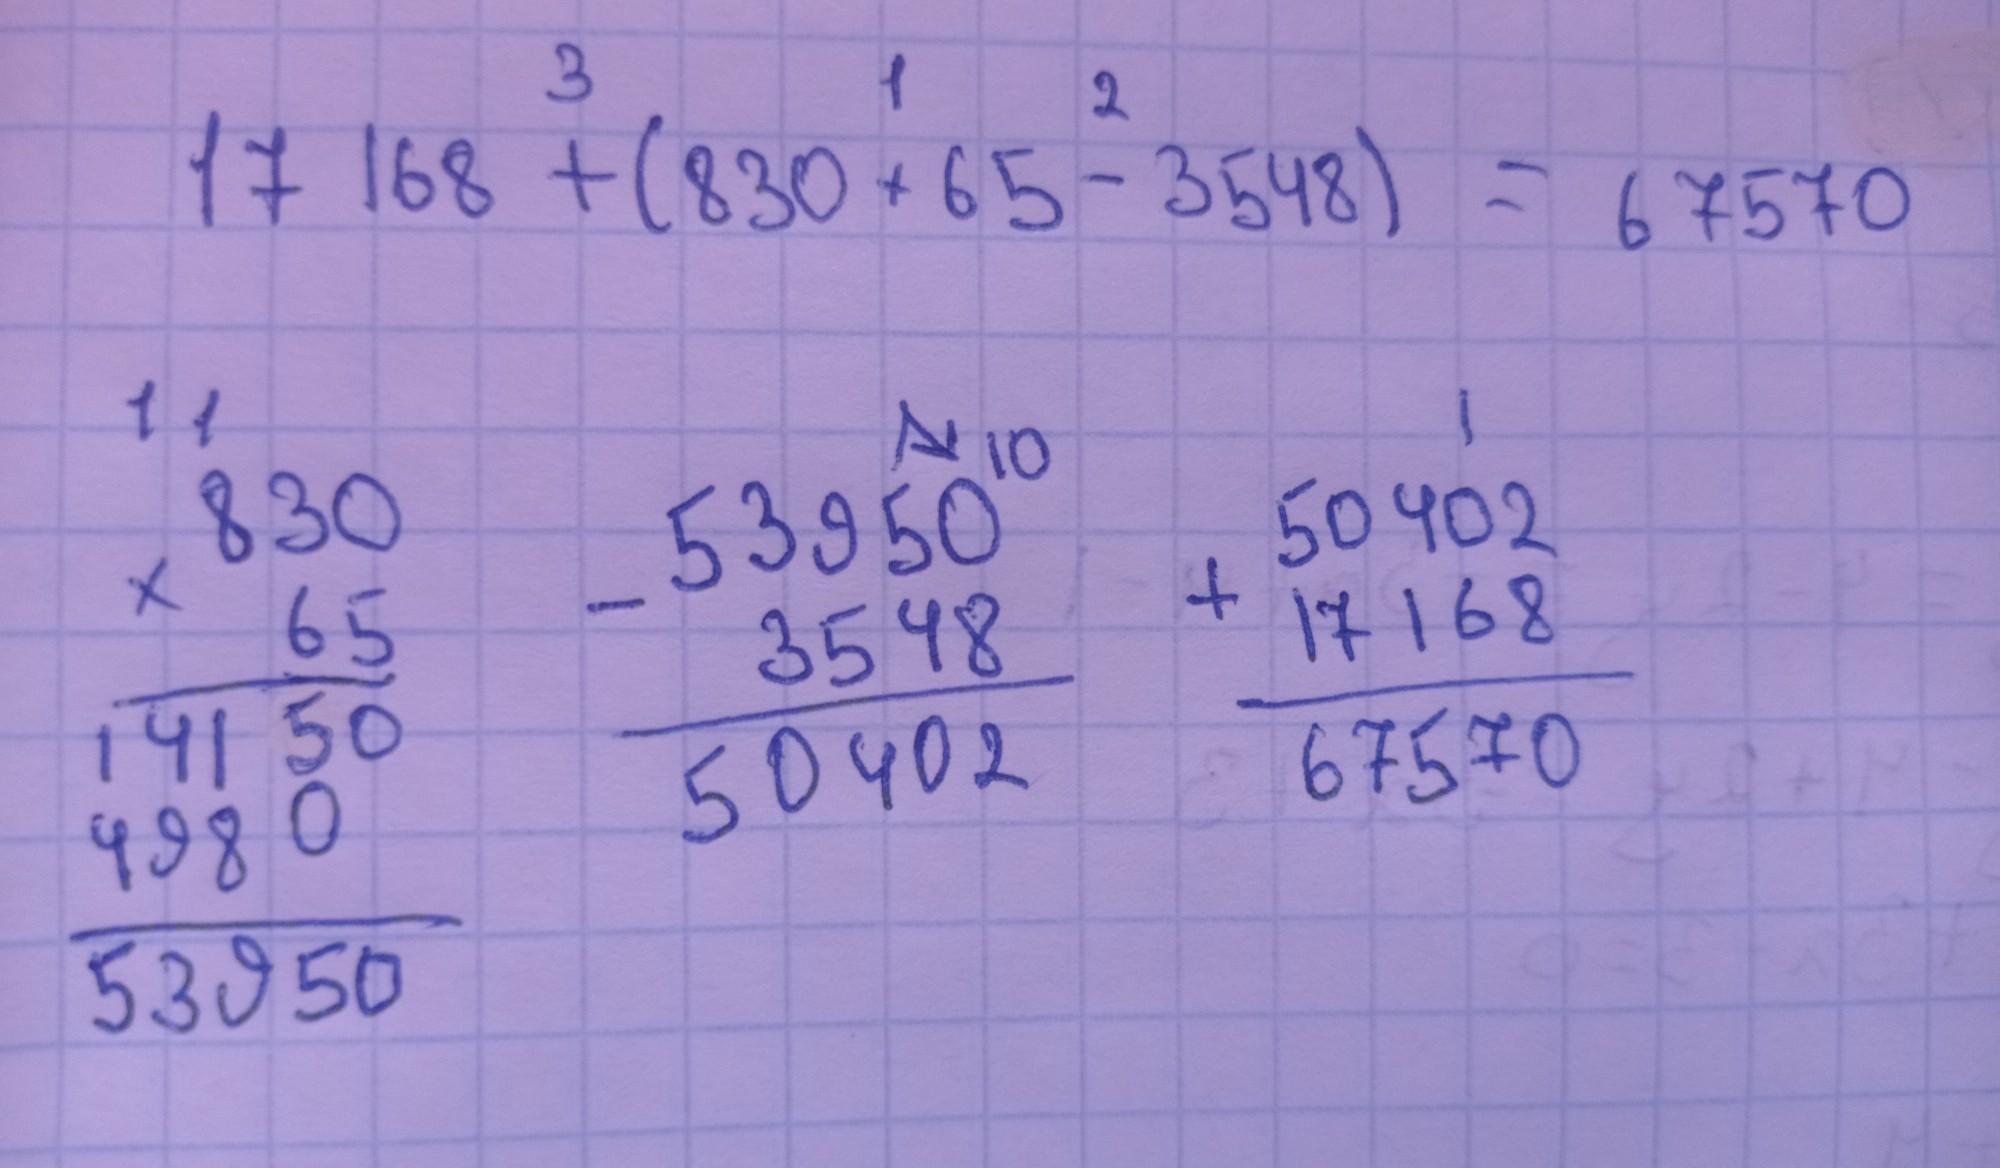 3 1 2
17 168 + (830 × 65 - 3548) = 67570
1 1
830
× 65
14150
4980
53950
10
53950
- 3548
50402
1
50402
+ 17168
67570